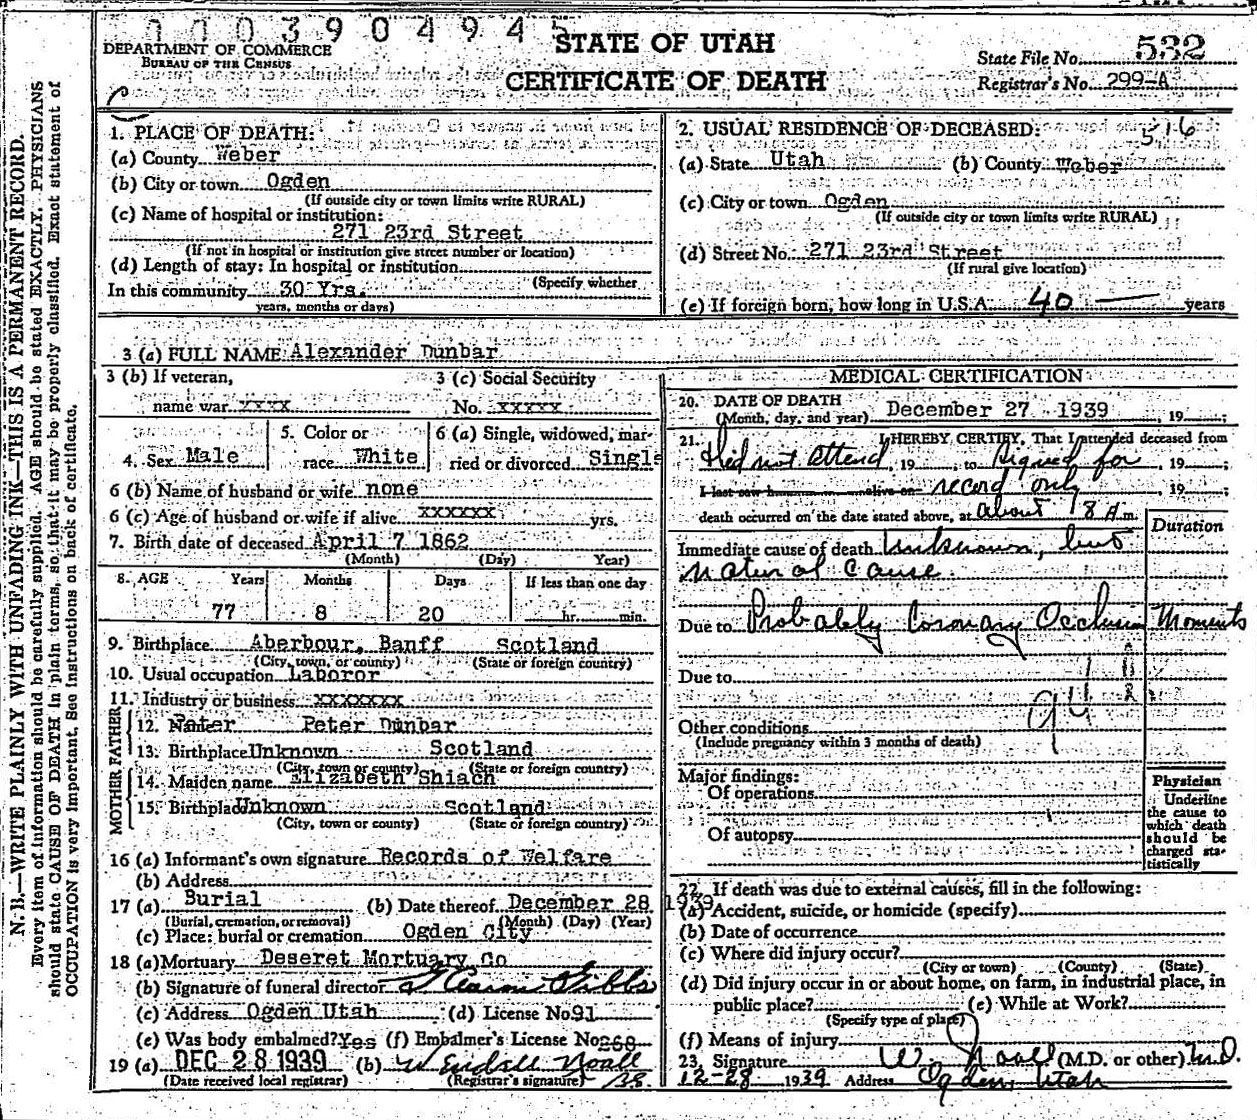 000390494
DEPARTMENT OF COMMERCE
BUREAU OF THE CENSUS
STATE OF UTAH
CERTIFICATE OF DEATH
State File No. 532
Registrar's No. 299-A
N. B.—WRITE PLAINLY WITH UNFADING INK—THIS IS A PERMANENT RECORD.
Every item of information should be carefully supplied. AGE should be stated EXACTLY. PHYSICIANS
should state CAUSE OF DEATH in plain terms, so that it may be properly classified. Exact statement of
OCCUPATION is very important. See instructions on back of certificate.
1. PLACE OF DEATH:
(a) County Weber
(b) City or town Ogden
(If outside city or town limits write RURAL)
(c) Name of hospital or institution:
271 23rd Street
(If not in hospital or institution give street number or location)
(d) Length of stay: In hospital or institution
(Specify whether
In this community 30 Yrs.
years, months or days)
2. USUAL RESIDENCE OF DECEASED: 516
(a) State Utah (b) County Weber
(c) City or town Ogden
(If outside city or town limits write RURAL)
(d) Street No. 271 23rd Street
(If rural give location)
(e) If foreign born, how long in U.S.A. 40 — years
3 (a) FULL NAME Alexander Dunbar
3 (b) If veteran,
name war xxxx
3 (c) Social Security
No. xxxxx
4. Sex Male
5. Color or
race White
6 (a) Single, widowed, mar-
ried or divorced Single
6 (b) Name of husband or wife none
6 (c) Age of husband or wife if alive xxxxxx yrs.
7. Birth date of deceased April 7 1862
(Month) (Day) Year)
8. AGE Years Months Days If less than one day
77 8 20 hr. min.
9. Birthplace Aberbour, Banff Scotland
(City, town, or county) (State or foreign country)
10. Usual occupation Laboror
11. Industry or business xxxxxxx
FATHER
12. Name Peter Dunbar
13. Birthplace Unknown Scotland
(City, town or county) (State or foreign country)
MOTHER
14. Maiden name Elizabeth Shiach
15. Birthplace Unknown Scotland
(City, town or county) (State or foreign country)
16 (a) Informant's own signature Records of Welfare
(b) Address
17 (a) Burial (b) Date thereof December 28 1939
(Burial, cremation, or removal) (Month) (Day) (Year)
(c) Place: burial or cremation Ogden City
18 (a) Mortuary Deseret Mortuary Co
(b) Signature of funeral director Gibbs
(c) Address Ogden Utah (d) License No 91
(e) Was body embalmed? Yes (f) Embalmer's License No 268
19 (a) DEC 28 1939 (b) Wendell Noall
(Date received local registrar) (Registrar's signature)
MEDICAL CERTIFICATION
20. DATE OF DEATH
(Month, day, and year) December 27 1939, 19 ;
21. I HEREBY CERTIFY, That I attended deceased from
Did not attend, 19 , to Signed for, 19 ;
I last saw h alive on record only, 19 ;
death occurred on the date stated above, at about 8 A m.
Duration
Immediate cause of death Unknown, but
Natural Cause.
Due to Probably Coronary Occlusion Moments
Due to
94
Other conditions
(Include pregnancy within 3 months of death)
Major findings:
Of operations
Of autopsy
Physician
Underline
the cause to
which death
should be
charged sta-
tistically
22. If death was due to external causes, fill in the following:
(a) Accident, suicide, or homicide (specify)
(b) Date of occurrence
(c) Where did injury occur?
(City or town) (County) (State)
(d) Did injury occur in or about home, on farm, in industrial place, in
public place? (e) While at Work?
(Specify type of place)
(f) Means of injury
23. Signature W. Noall (M.D. or other) M.D.
12-28 1939 Address Ogden, Utah